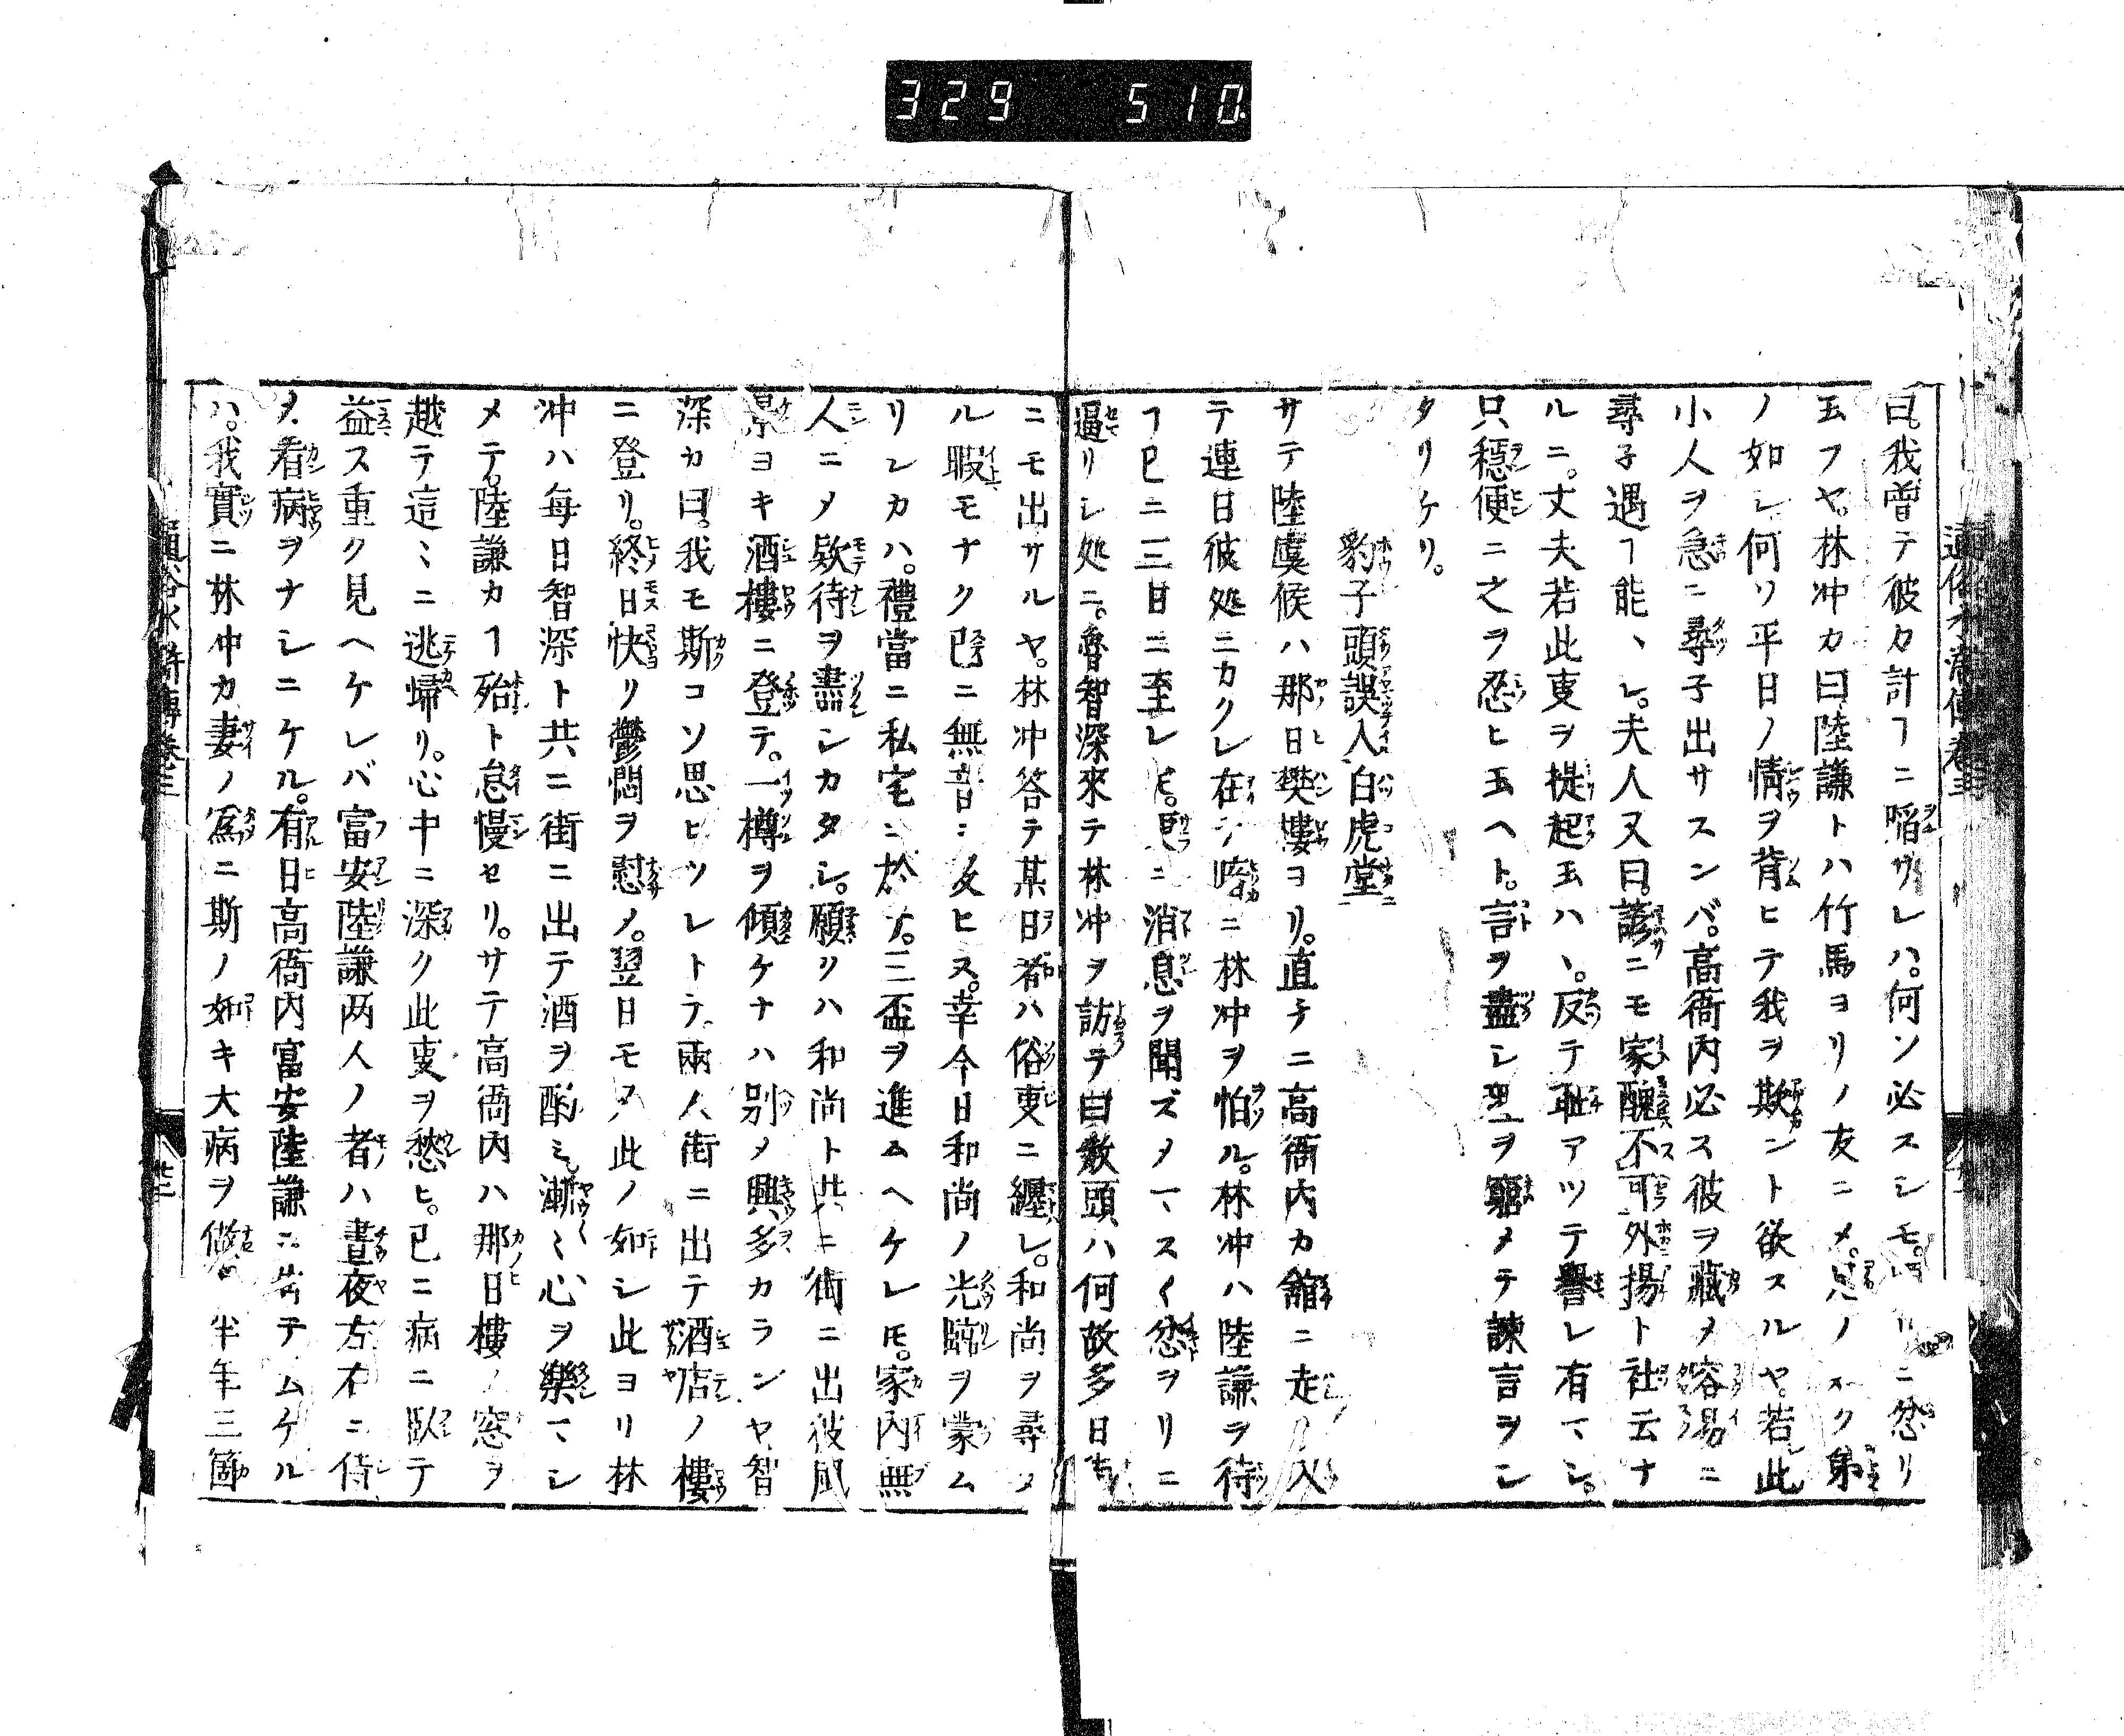 329 510
曰。我曽テ彼カ計ヿニ陷ザレハ。何ソ必スシモニ忿リ
玉フヤ。林冲カ曰陸謙トハ竹馬ヨリノ友ニメ。兄ノク弟
ノ如シ何ソ平日ノ情ヲ背ヒテ我ヲ欺ント欲スルヤ。若此
小人ヲ急ニ尋子出サスンバ。高衙内必ス彼ヲ藏メ容易ニ
尋子遇ヿ能ヽシ。夫人又曰。諺ニモ家醜不可外揚ト社云ナ
ルニ。丈夫若此叓ヲ提起玉ハヽ。反テ耻アツテ譽レ有マシ。
只穏便ニ之ヲ忍ヒ玉ヘト。言ヲ盡シ理ヲ窮メテ諫言ヲシ
タリケリ。
豹子頭誤入白虎堂
サテ陸虞候ハ那日樊樓ヨリ。直チニ高衙内カ舘ニ走リ入
テ連日彼処ニカクレ在テ暗ニ林冲ヲ怕ル。林冲ハ陸謙ヲ待
ヿ已ニ三日ニ至レ𪜈。更ニ消息ヲ聞ズメマスイ忿ヲリニ
逼リシ処ニ。魯智深來テ林冲ヲ訪テ曰教頭ハ何故多日
ニモ出サルヤ。林冲答テ某日者ハ俗叓ニ纒レ。和尚ヲ尋メ
ル暇モナク已ニ無音ニ及ヒヌ。幸今日和尚ノ光臨ヲ蒙ム
リシカハ。禮當ニ私宅ニ於テ。三盃ヲ進ムヘケレ𪜈。家内無
人ニメ欵待ヲ盡シカタシ。願クハ和尚ト共ニ街ニ出彼風
景ヨキ酒樓ニ登テ。一樽ヲ傾ケナハ別メ興多カランヤ智
深カ曰。我モ斯コソ思ヒツレトテ。兩人街ニ出テ酒店ノ樓
ニ登リ。終日快リ鬱悶ヲ慰メ。翌日モ又此ノ如シ此ヨリ林
冲ハ毎日智深ト共ニ街ニ出テ酒ヲ酌ミ。漸〻心ヲ樂マシ
メテ。陸謙カヿ殆ト怠慢セリ。サテ高衙内ハ那日樓ノ窓ヲ
越テ這〻ニ逃帰リ。心中ニ深ク此叓ヲ愁ヒ。已ニ病ニ臥テ
益ス重ク見ヘケレバ富安陸謙両人ノ者ハ晝夜左右ニ侍
メ。看病ヲナシニケル。有日高衙内富安陸謙ニ向テムケル
ハ。我實ニ林冲カ妻ノ為ニ斯ノ如キ大病ヲ做 半年三箇